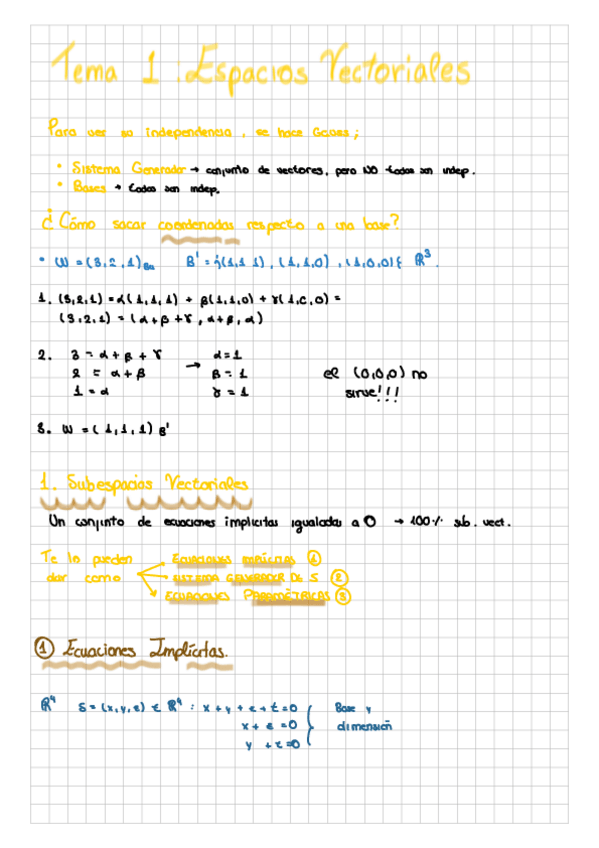 Tema 1 : Espacios Vectoriales
Para ver su independencia, se hace Gauss;
• Sistema Generador → conjunto de vectores, pero NO todos son indep.
• Bases → todos son indep.
¿Cómo sacar coordenadas respecto a una base?
• W = (3,2,1)Bc B' = {(1,1,1), (1,1,0), (1,0,0)} ℝ³.
1. (3,2,1) = α(1,1,1) + β(1,1,0) + γ(1,0,0) =
(3,2,1) = (α+β+γ, α+β, α)
2. 3 = α + β + γ → α=1
2 = α + β β = 1 el (0,0,0) no
1 = α γ = 1 sirve!!!
3. W = (1,1,1) B'
1. Subespacios Vectoriales
Un conjunto de ecuaciones implícitas igualadas a 0 → 100% sub. vect.
Te lo pueden dar como
ECUACIONES IMPLÍCITAS ①
SISTEMA GENERADOR DE S ②
ECUACIONES PARAMÉTRICAS ③
① Ecuaciones Implícitas.
ℝ⁴ S = (x,y,z) ∈ ℝ⁴ : x + y + z + t = 0 Base y
x + z = 0 dimensión
y + t = 0